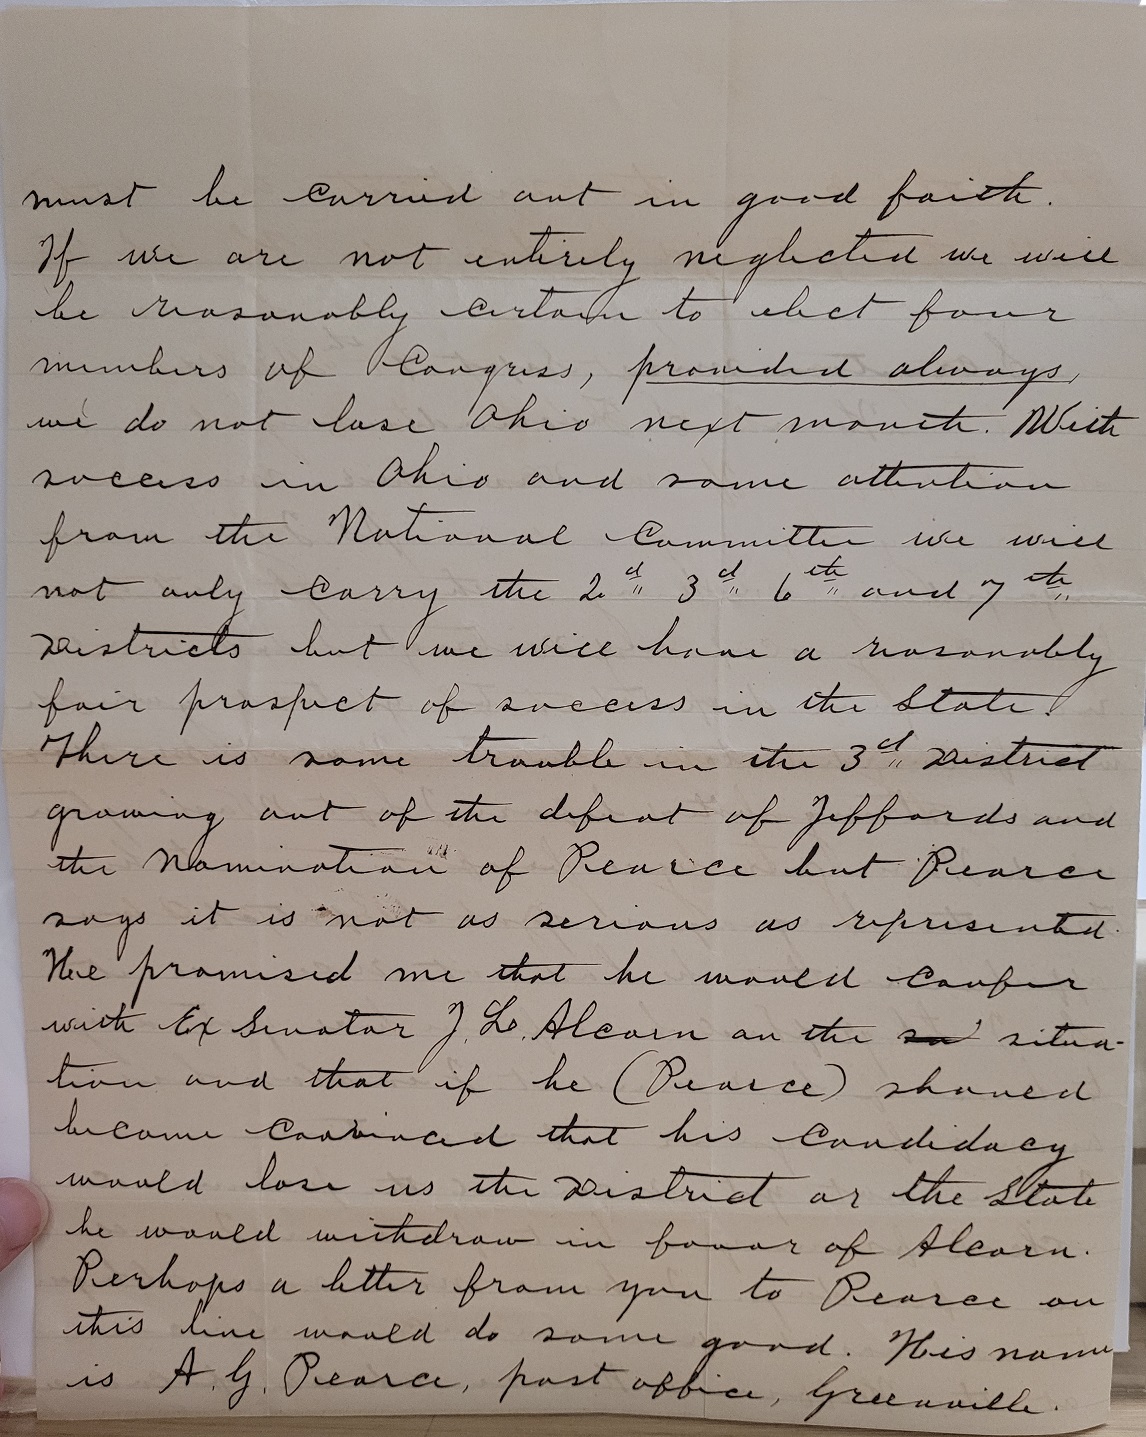 must be carried out in good faith.
If we are not entirely neglected we will
be reasonably certain to elect four
members of Congress, provided always,
we do not lose Ohio next month. With
success in Ohio and some attention
from the National Committee we will
not only carry the 2d 3d 6th and 7th
Districts but we will have a reasonably
fair prospect of success in the State.
There is some trouble in the 3d District
growing out of the defeat of Jeffords and
the nomination of Pearce but Pearce
says it is not as serious as represented.
He promised me that he would confer
with Ex Senator J. L. Alcorn on the situa-
tion and that if he (Pearce) should
become convinced that his candidacy
would lose us the District or the State
he would withdraw in favor of Alcorn.
Perhaps a letter from you to Pearce on
this line would do some good. His name
is A. G. Pearce, post office, Greenville.